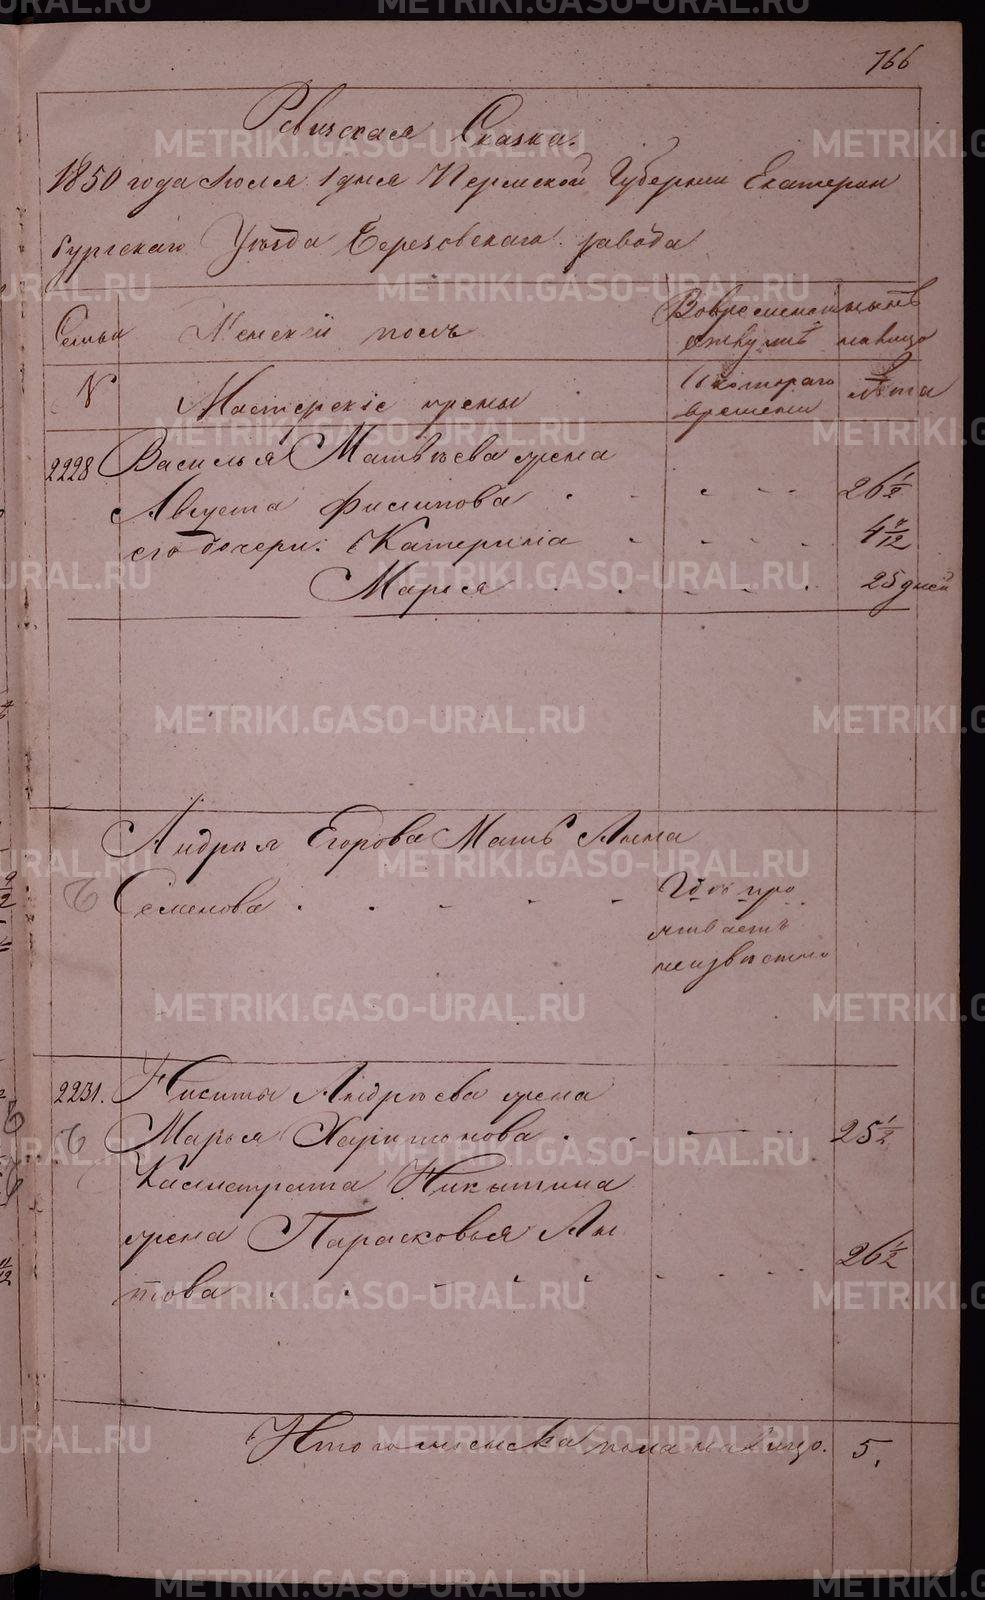 766
Ревизская Сказка.
1850 года Июля 1 дня Пермской Губернии Екатерин
бургскаго Уѣзда Березовскаго завода
Семьи Женскій полъ Вовременной отлучкѣ нынѣ налицо
№ Мастерскіе жены Скотораго времени Лѣта
2228 Василья Матвѣева жена
Августа Филипова 26 1/2
его дочери: Катерина 4 7/12
Марья 25 дней
Андрея Егорова Мать Анна
Семенова Гдѣ про
живаетъ
неизвѣстно
2231. Никиты Андрѣева жена
Марья Харитонова 25 1/2
Калистрата Никитина
жена Парасковья Ан
това 26 1/2
Итого женска пола налицо. 5.
METRIKI.GASO-URAL.RU